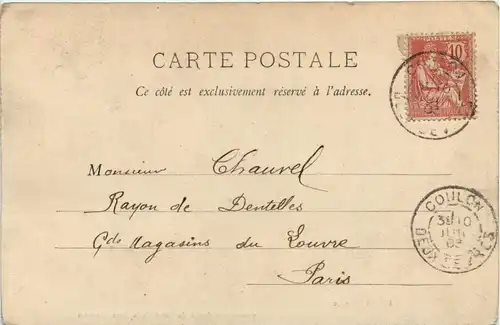 CARTE POSTALE
Ce côté est exclusivement réservé à l'adresse.
10
Monsieur Chauvel
Rayon de Dentelles
Gds Magasins du Louvre
Paris
COULON
DEUX-SÈVRES